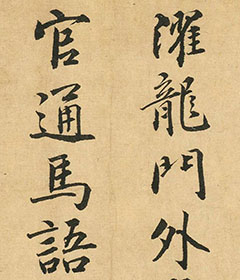 濯龍門外
官通馬語